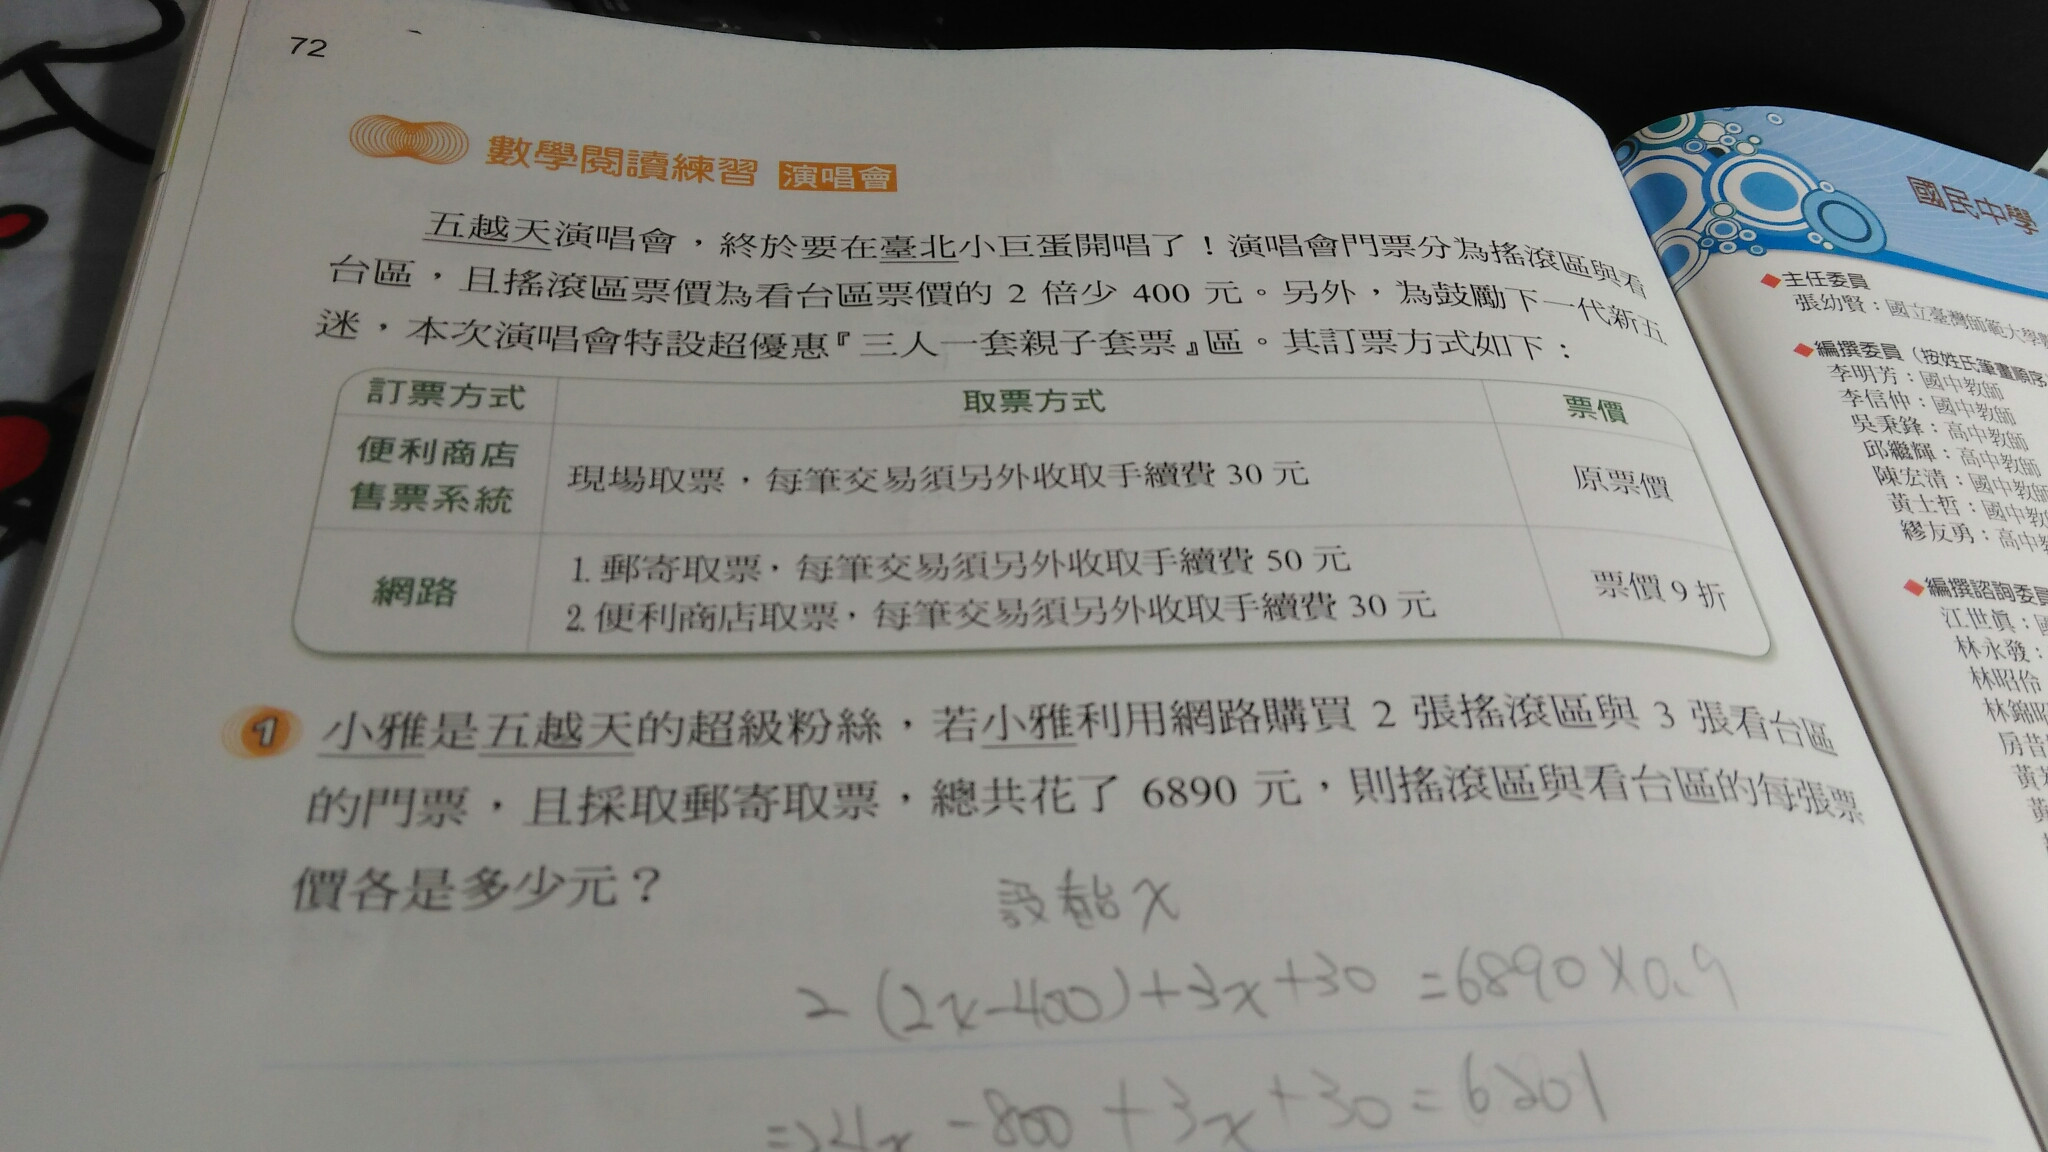 72
數學閱讀練習 演唱會
五越天演唱會，終於要在臺北小巨蛋開唱了！演唱會門票分為搖滾區與看
台區，且搖滾區票價為看台區票價的 2 倍少 400 元。另外，為鼓勵下一代新五
迷，本次演唱會特設超優惠『三人一套親子套票』區。其訂票方式如下：
訂票方式 取票方式 票價
便利商店
售票系統
現場取票，每筆交易須另外收取手續費 30 元
原票價
網路
1. 郵寄取票，每筆交易須另外收取手續費 50 元
2. 便利商店取票，每筆交易須另外收取手續費 30 元
票價 9 折
1 小雅是五越天的超級粉絲，若小雅利用網路購買 2 張搖滾區與 3 張看台區
的門票，且採取郵寄取票，總共花了 6890 元，則搖滾區與看台區的每張票
價各是多少元？
設看台 x
2(2x-400)+3x+30=6890×0.9
=>4x-800+3x+30=6201
國民中學
◆主任委員
張幼賢：國立臺灣師範大學
◆編撰委員（按姓氏筆畫順序
李明芳：國中教師
李信仲：國中教師
吳秉鋒：高中教師
邱繼輝：高中教師
陳宏清：國中教師
黃士哲：國中教
繆友勇：高中
◆編撰諮詢委員
江世眞：
林永發：
林昭伶
林錦
房昔
黃